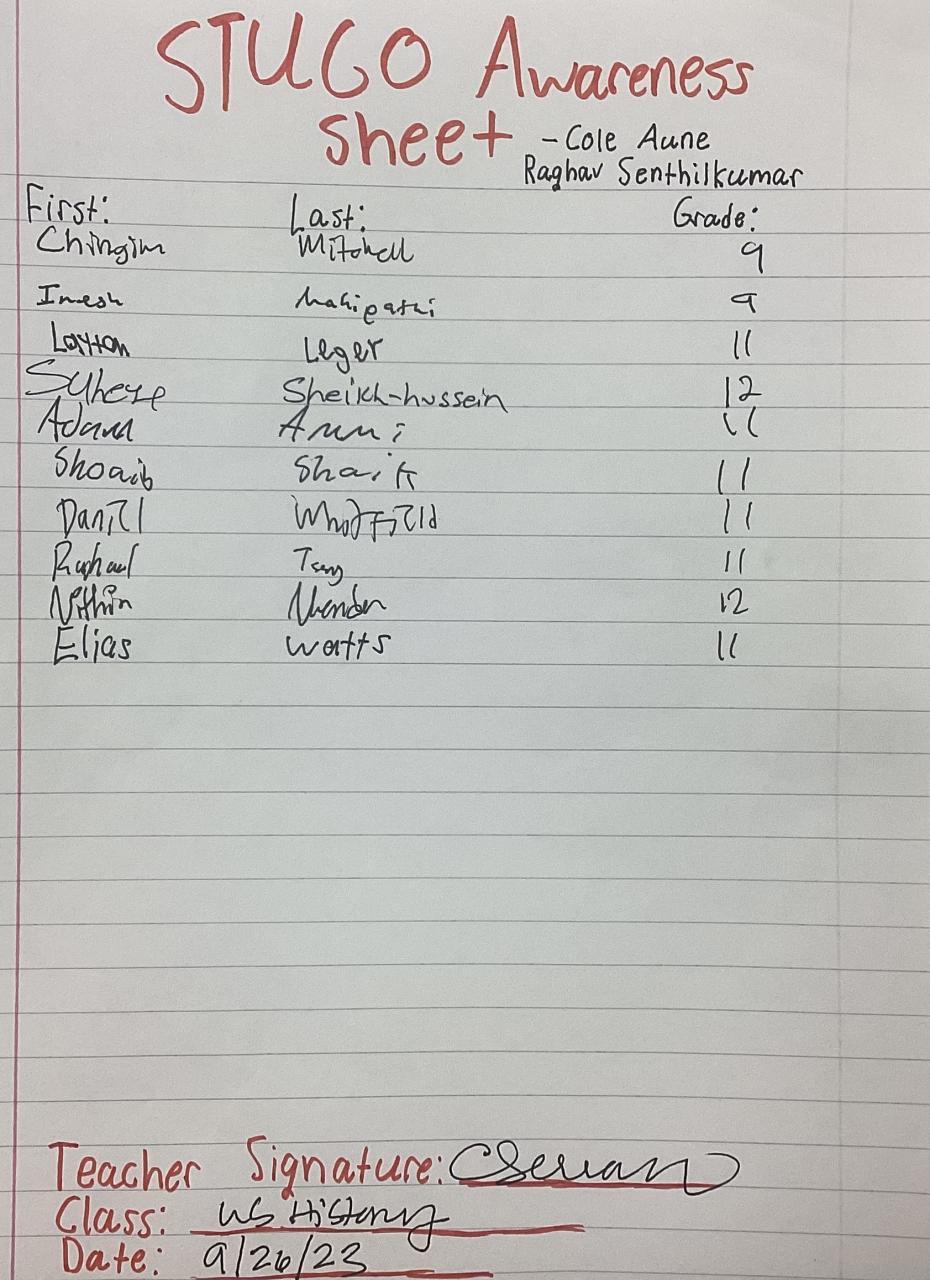 STUGO Awareness
Sheet -Cole Aune
Raghav Senthilkumar
First: Last: Grade:
Chingim Mitchell 9
Inesh 9
Layton Leger 11
Sheikh-hussein 12
Adam 11
Shoaib Shaik 11
Daniel Whitfield 11
Raphael Tsang 11
Nithin 12
Elias Watts 11
Teacher Signature:
Class: US History
Date: 9/26/23